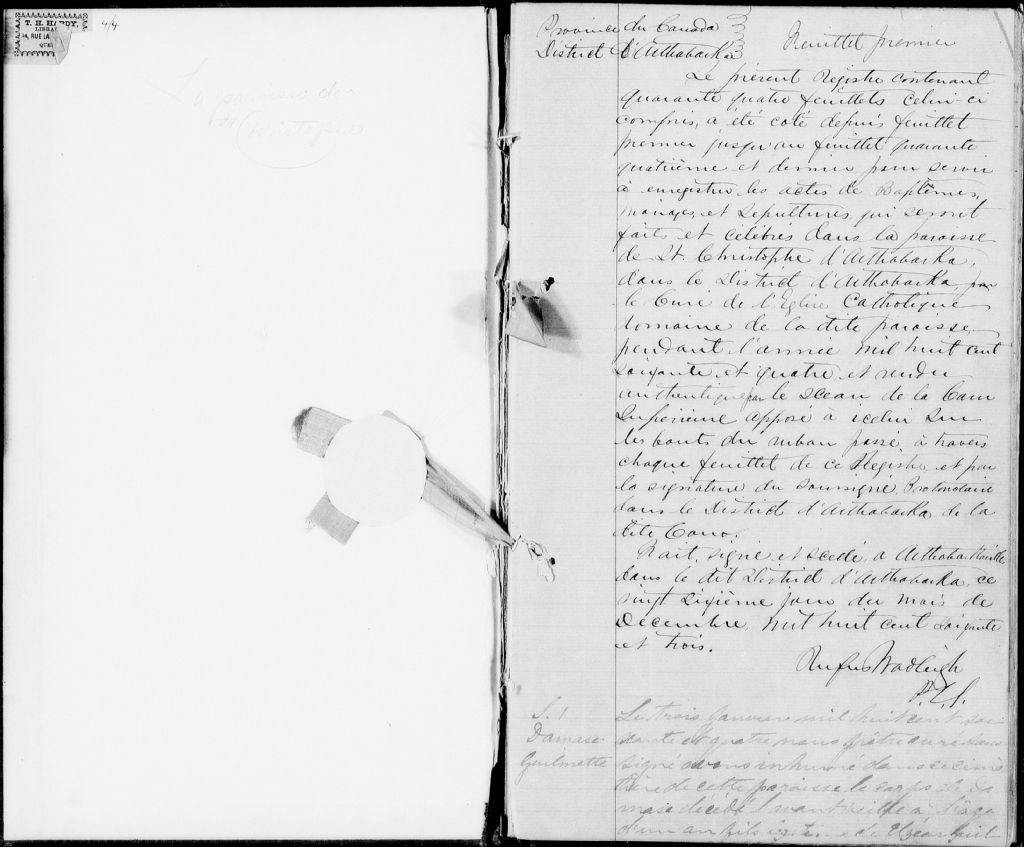 T. H. HARDY,
LIBRA
RUE LA
QUE
4/4
La paroisse de
St Christophe
Province du Canada
District d'Arthabaska
Feuillet premier
Le présent Registre contenant
quarante quatre feuillets celui-ci
compris, a été coté depuis feuillet
premier jusqu'au feuillet quarante
quatrième et dernier pour servir
à enregistrer les actes de Baptêmes,
mariages, et sepultures, qui seront
faits et célébrés dans la paroisse
de St. Christophe d'Arthabaska,
dans le District d'Arthabaska, par
le Curé de l'Eglise Catholique
Romaine de la dite paroisse,
pendant l'année mil huit cent
soixante et quatre, et rendu
authentique par le sceau de la Cour
Supérieure apposé à icelui sur
les bouts du ruban passé à travers
chaque feuillet de ce Registre, et par
la signature du soussigné, Protonotaire
dans le District d'Arthabaska de la
dite Cour.
Fait, signé et scellé, à Arthabaskaville
dans le dit District d'Arthabaska, ce
vingt sixième jour du mois de
Décembre, mil huit cent soixante
et trois.
Rufus Wadleigh
P.C.S.
S. 1
Damase
Guilmette
Le trois Janvier mil huit cent soi
xante et quatre nous prêtre curé sous
signé avons inhumé dans le cime
tière de cette paroisse le corps de Da
mase décédé l'avant veille à l'age
d'un an fils légitime de Elzéar Guil